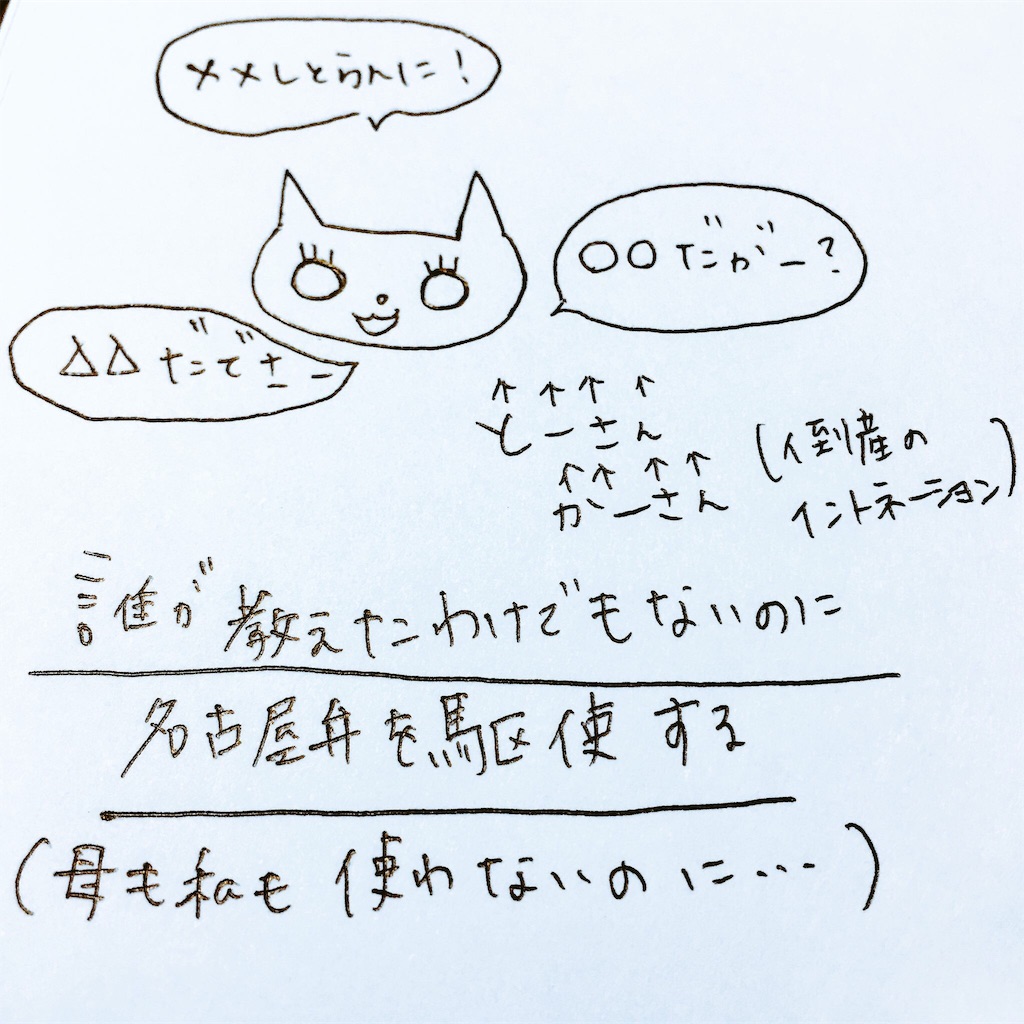 ××しとらんに!
○○だがー?
△△だでさー
↑↑↑↑
とーさん
↑↑↑↑
かーさん
(倒産の
イントネーション)
誰が教えたわけでもないのに
名古屋弁を駆使する
(母も私も使わないのに…)